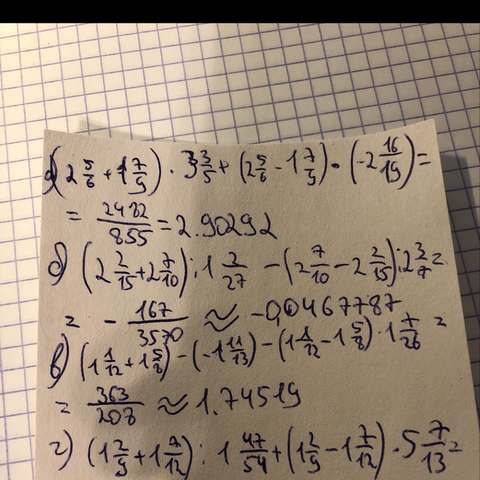 а) (2 5/6 + 1 7/9) · 3 3/5 + (2 5/6 - 1 7/9) · (-2 16/19) =
= 2482/855 = 2.90292
б) (2 2/15 + 2 7/10) : 1 2/27 - (2 7/10 - 2 2/15) : 2 3/7 =
= - 167/3570 ≈ -0,0467787
в) (1 1/12 + 1 5/8) - (-1 11/13) - (1 1/12 - 1 5/8) · 1 7/26 =
= 363/208 ≈ 1.74519
г) (1 2/9 + 1 7/12) : 1 47/54 + (1 2/9 - 1 7/12) · 5 7/13 =